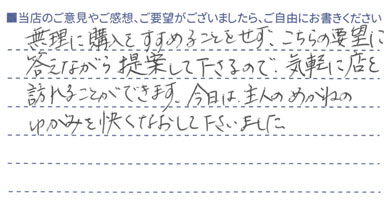 ■当店のご意見やご感想、ご要望がございましたら、ご自由にお書きください
無理に購入をすすめることをせず、こちらの要望に
答えながら提案して下さるので、気軽に店を
訪れることができます。今日は主人のめがねの
ゆがみを快くなおして下さいました